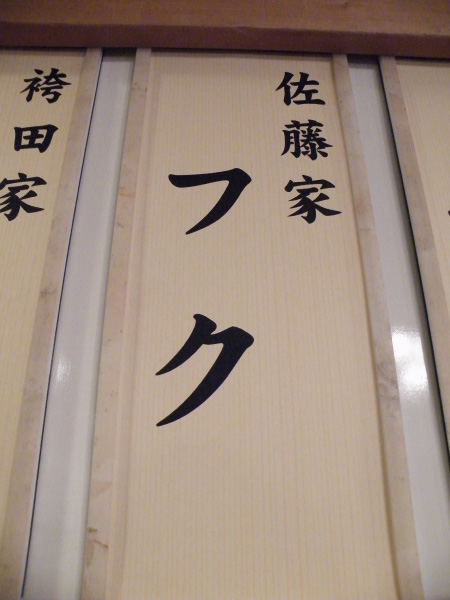 佐藤家
フク
袴田家